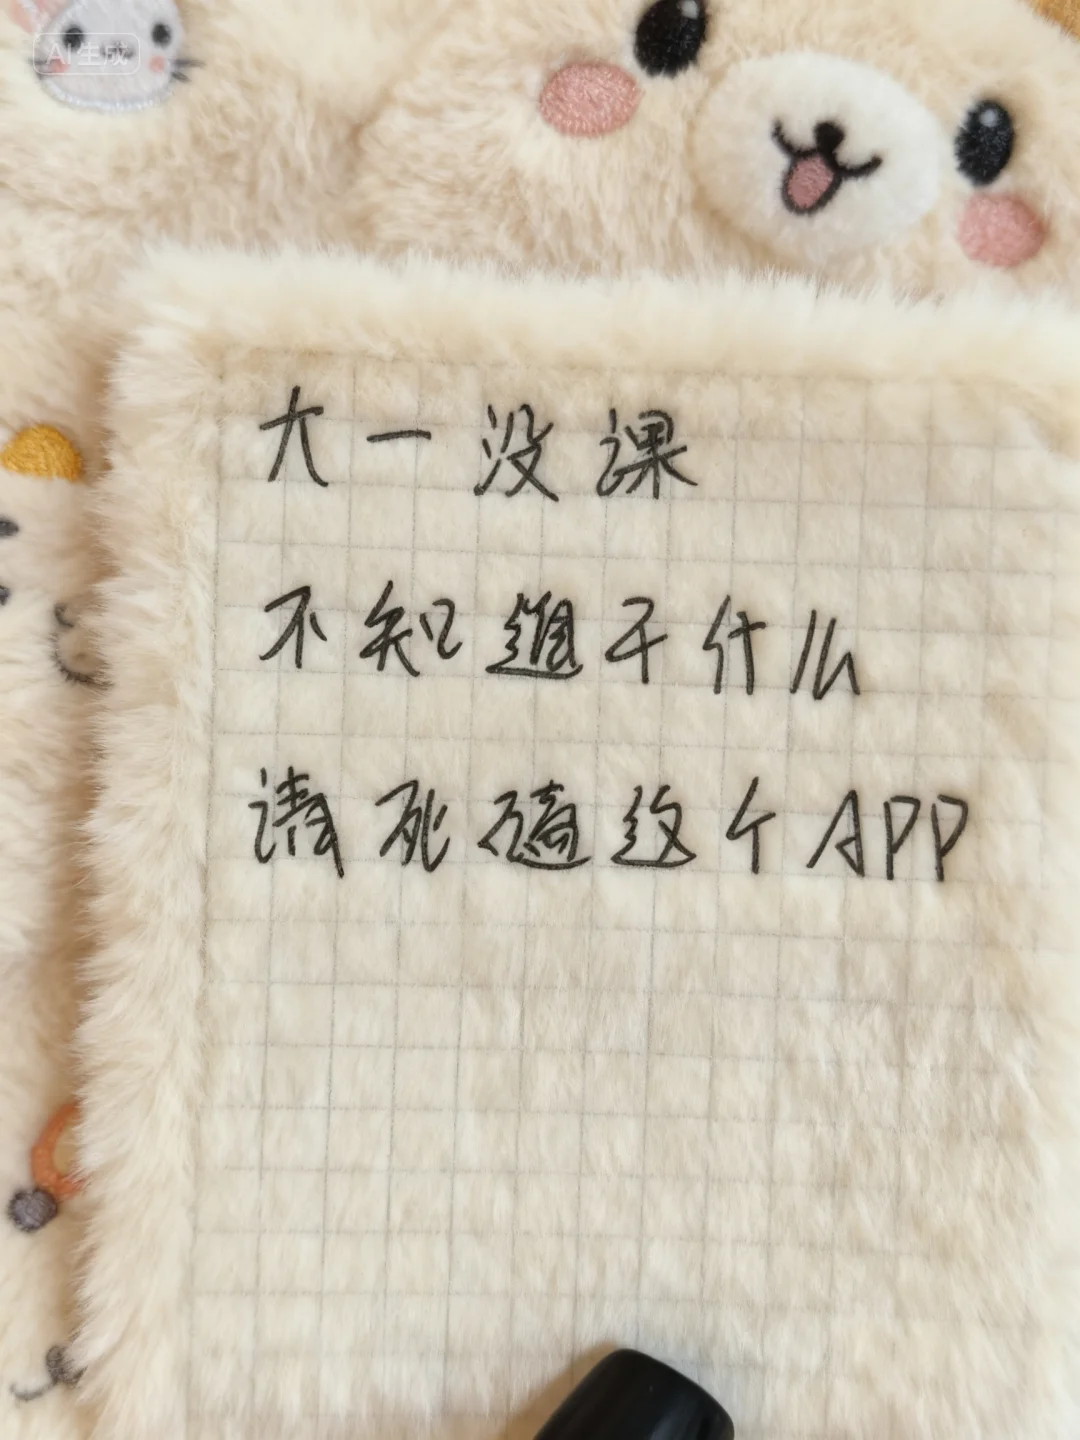 AI生成
大一没课
不知道干什么
请死磕这个APP